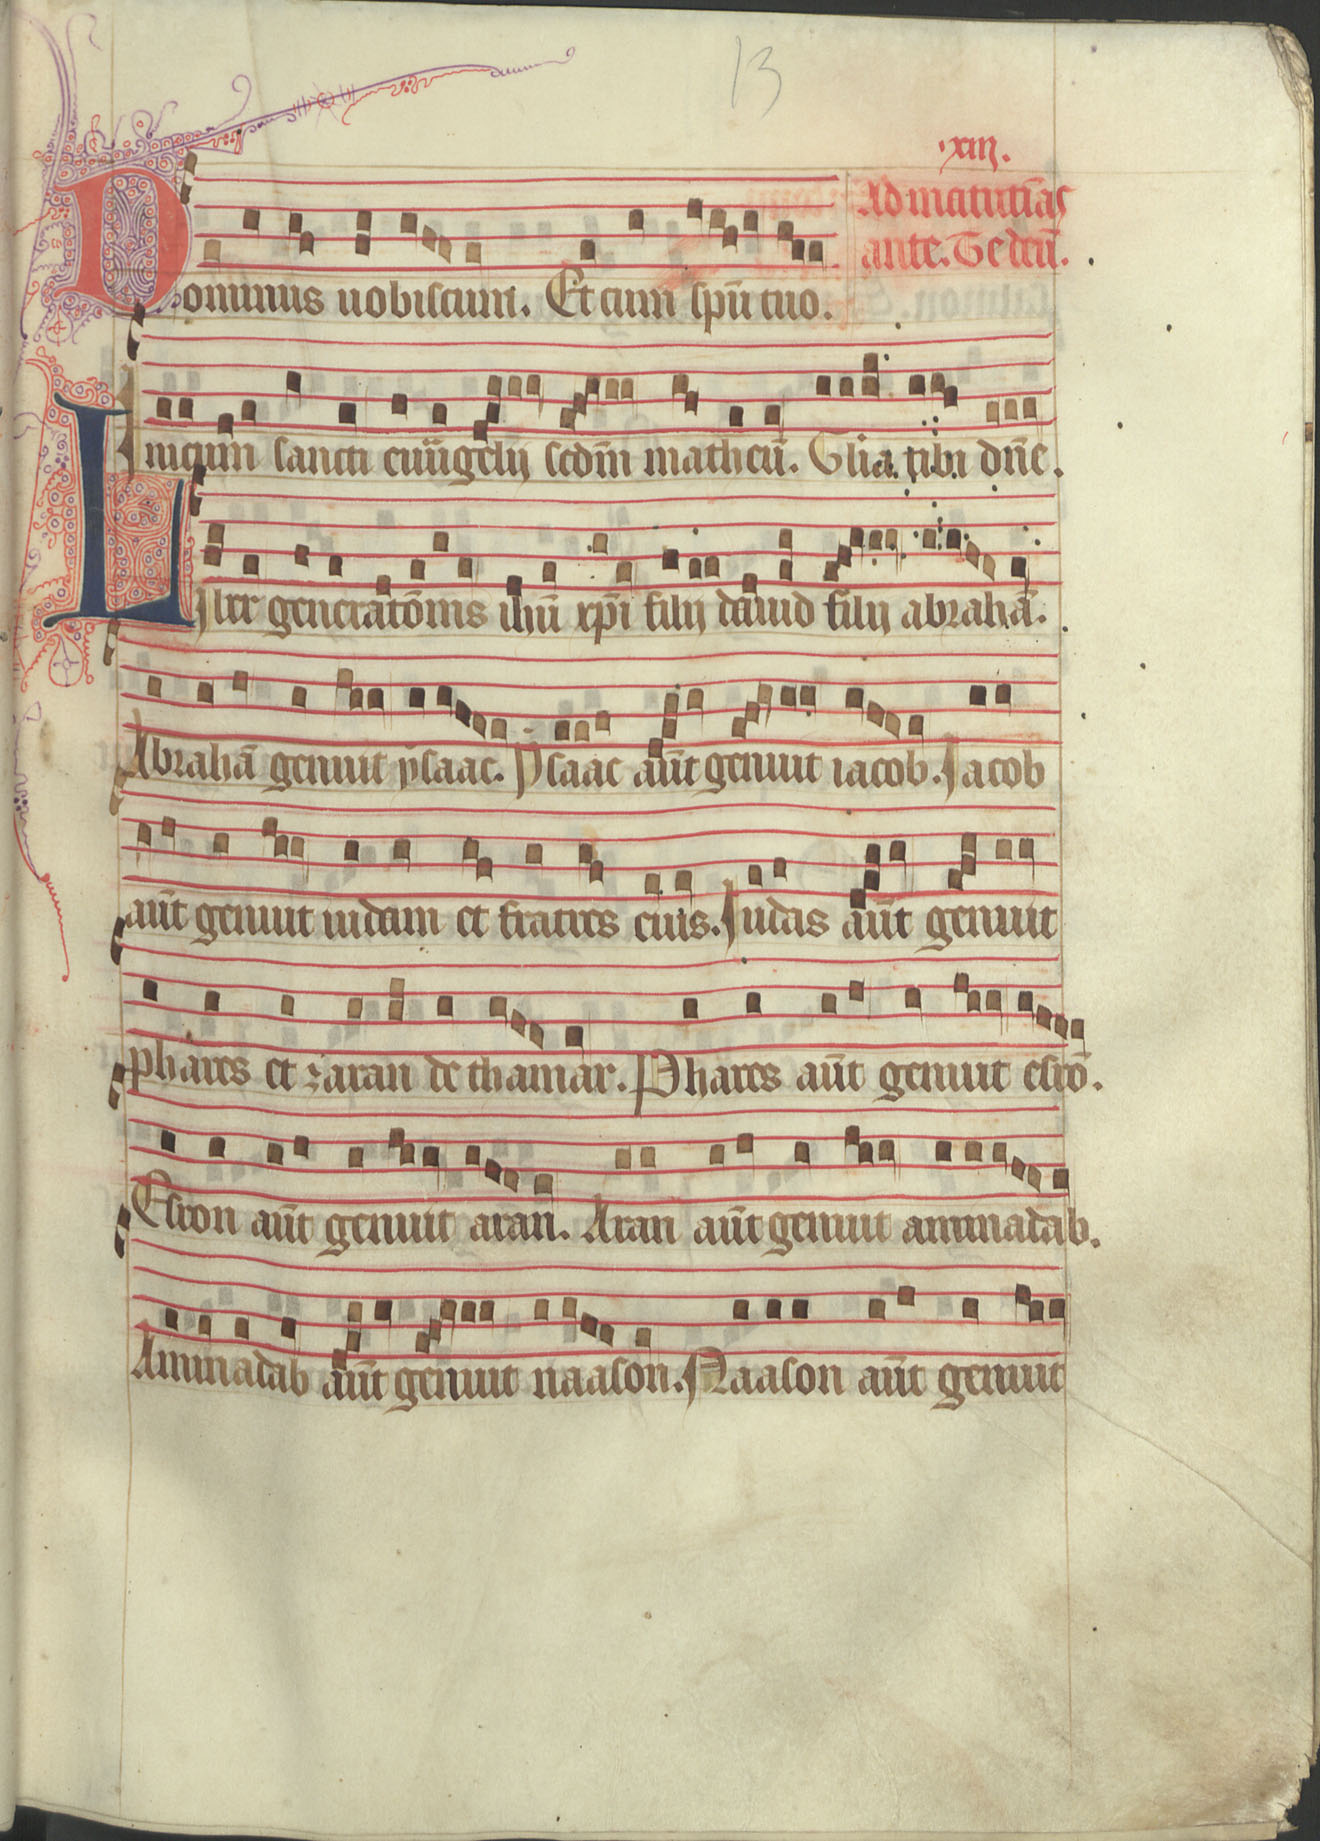 13
.xiii.
Ad matutinas
ante. Te deū.
Dominus uobiscum. Et cum spū tuo.
Inicium sancti euūgelij scdm̄ matheū. Glia tibi dn̄e.
Liber generatōnis ihū xpi filij dauid filij abrahā.
Abrahā genuit ysaac. Ysaac aūt genuit iacob. Jacob
aūt genuit iudam et fratres eius. Judas aūt genuit
phares et zaran de thamar. Phares aūt genuit esrō.
Esron aūt genuit aran. Aran aūt genuit aminadab.
Aminadab aūt genuit naason. Naason aūt genuit